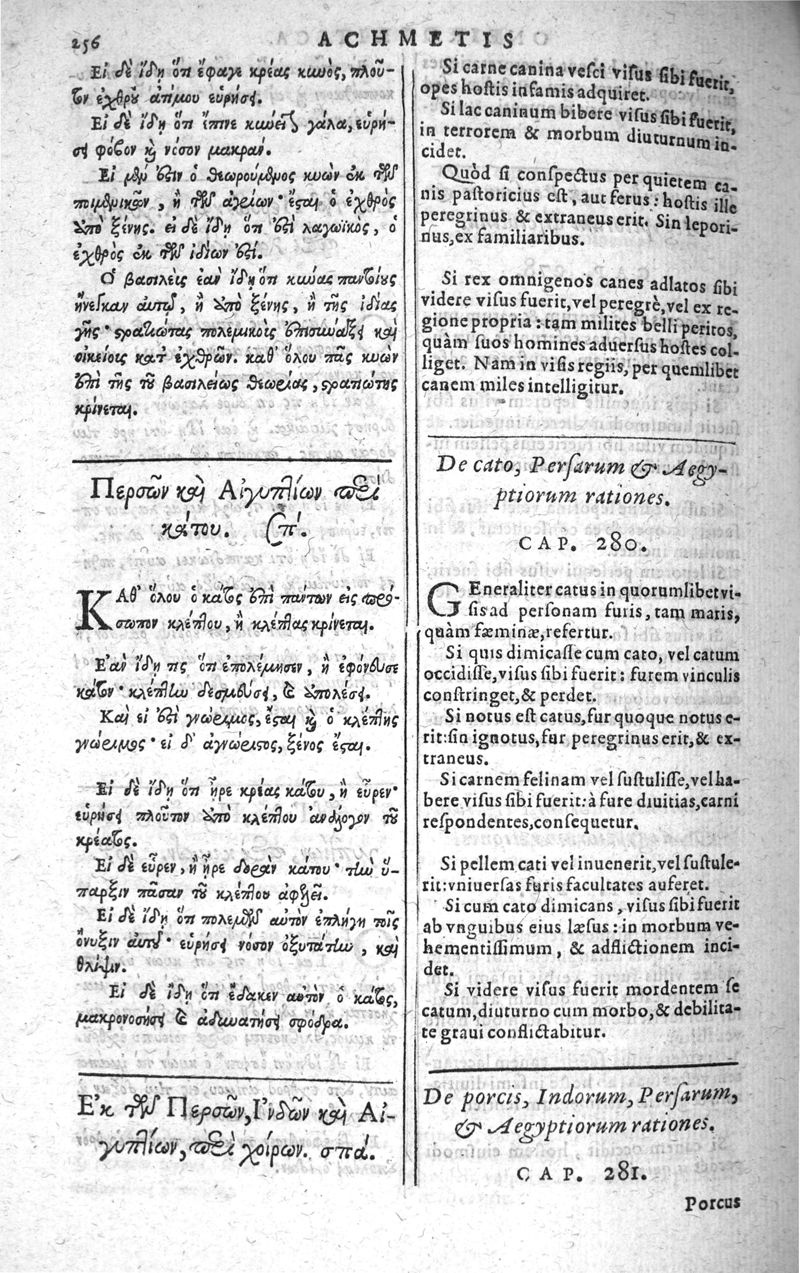 256
ACHMETIS
Εἰ δὲ ἴδῃ ὅτι ἔφαγε κρέας κυνὸς, πλοῦ-
τον ἐχθροῦ ἀτίμου εὑρήσει.
Εἰ δὲ ἴδῃ ὅτι ἔπινε κυνεῖον γάλα, εὑρή-
σει φόβον καὶ νόσον μακράν.
Εἰ μέν ἐστιν ὁ θεωρούμενος κυὼν ἐκ τῶν
ποιμενικῶν, ἢ τῶν ἀγρίων· ἔσται ὁ ἐχθρὸς
ἀπὸ ξένης. εἰ δὲ ἴδῃ ὅτι ἐστὶ λαγωϊκὸς, ὁ
ἐχθρὸς ἐκ τῶν ἰδίων ἐστί.
Ὁ βασιλεὺς ἐὰν ἴδῃ ὅτι κύνας παντοίους
ἤνεγκαν αὐτῷ, ἢ ἀπὸ ξένης, ἢ τῆς ἰδίας
γῆς· στρατιώτας πολεμικοὺς ἐπισυνάξει καὶ
οἰκείους κατ' ἐχθρῶν. καθ' ὅλου πᾶς κυὼν
ἐπὶ τῆς τοῦ βασιλέως θεωρίας, στρατιώτης
κρίνεται.
Περσῶν καὶ Αἰγυπτίων περὶ
κάτου. σπ'.
ΚΑθ' ὅλου ὁ κάτος ἐπὶ πάντων εἰς πρό-
σωπον κλέπτου, ἢ κλέπτας κρίνεται.
Ἐὰν ἴδῃ τις ὅτι ἐπολέμησεν, ἢ ἐφόνευσε
κάτον· κλέπτην δεσμεύσει, καὶ ἀπολέσει.
Καὶ εἰ ἐστὶ γνώριμος, ἔσται καὶ ὁ κλέπτης
γνώριμος· εἰ δ' ἀγνώριστος, ξένος ἔσται.
Εἰ δὲ ἴδῃ ὅτι ἦρε κρέας κάτου, ἢ εὗρεν·
εὑρήσει πλοῦτον ἀπὸ κλέπτου ἀνάλογον τοῦ
κρέατος.
Εἰ δὲ εὗρεν, ἢ ἦρε δορὰν κάτου· τὴν ὕ-
παρξιν πᾶσαν τοῦ κλέπτου ἀφελεῖ.
Εἰ δὲ ἴδῃ ὅτι πολεμῶν αὐτὸν ἐπλήγη τοῖς
ὄνυξιν αὐτοῦ· εὑρήσει νόσον ὀξυτάτην, καὶ
θλίψιν.
Εἰ δὲ ἴδῃ ὅτι ἔδακεν αὐτὸν ὁ κάτος,
μακρονοσήσει καὶ ἀδυνατήσει σφόδρα.
Ἐκ τῶν Περσῶν, Ἰνδῶν καὶ Αἰ-
γυπτίων, περὶ χοίρων. σπά.
Si carne canina vesci visus sibi fuerit,
opes hostis infamis adquiret.
Si lac caninum bibere visus sibi fuerit,
in terrorem & morbum diuturnum in-
cidet.
Quòd si conspectus per quietem ca-
nis pastoricius est, aut ferus: hostis ille
peregrinus & extraneus erit. Sin lepori-
nus, ex familiaribus.
Si rex omnigenos canes adlatos sibi
videre visus fuerit, vel peregrè, vel ex re-
gione propria: tam milites belli peritos,
quàm suos homines aduersus hostes col-
liget. Nam in visis regiis, per quemlibet
canem miles intelligitur.
De cato, Persarum & Aegy-
ptiorum rationes.
CAP. 280.
GEneraliter catus in quorumlibet vi-
sis ad personam furis, tam maris,
quàm fæminæ, refertur.
Si quis dimicasse cum cato, vel catum
occidisse, visus sibi fuerit: furem vinculis
constringet, & perdet.
Si notus est catus, fur quoque notus e-
rit: sin ignotus, fur peregrinus erit, & ex-
traneus.
Si carnem felinam vel sustulisse, vel ha-
bere visus sibi fuerit: à fure diuitias, carni
respondentes, consequetur.
Si pellem cati vel inuenerit, vel sustule-
rit: vniuersas furis facultates auferet.
Si cum cato dimicans, visus sibi fuerit
ab vnguibus eius læsus: in morbum ve-
hementissimum, & adflictionem inci-
det.
Si videre visus fuerit mordentem se
catum, diuturno cum morbo, & debilita-
te graui conflictabitur.
De porcis, Indorum, Persarum,
& Aegyptiorum rationes.
CAP. 281.
Porcus